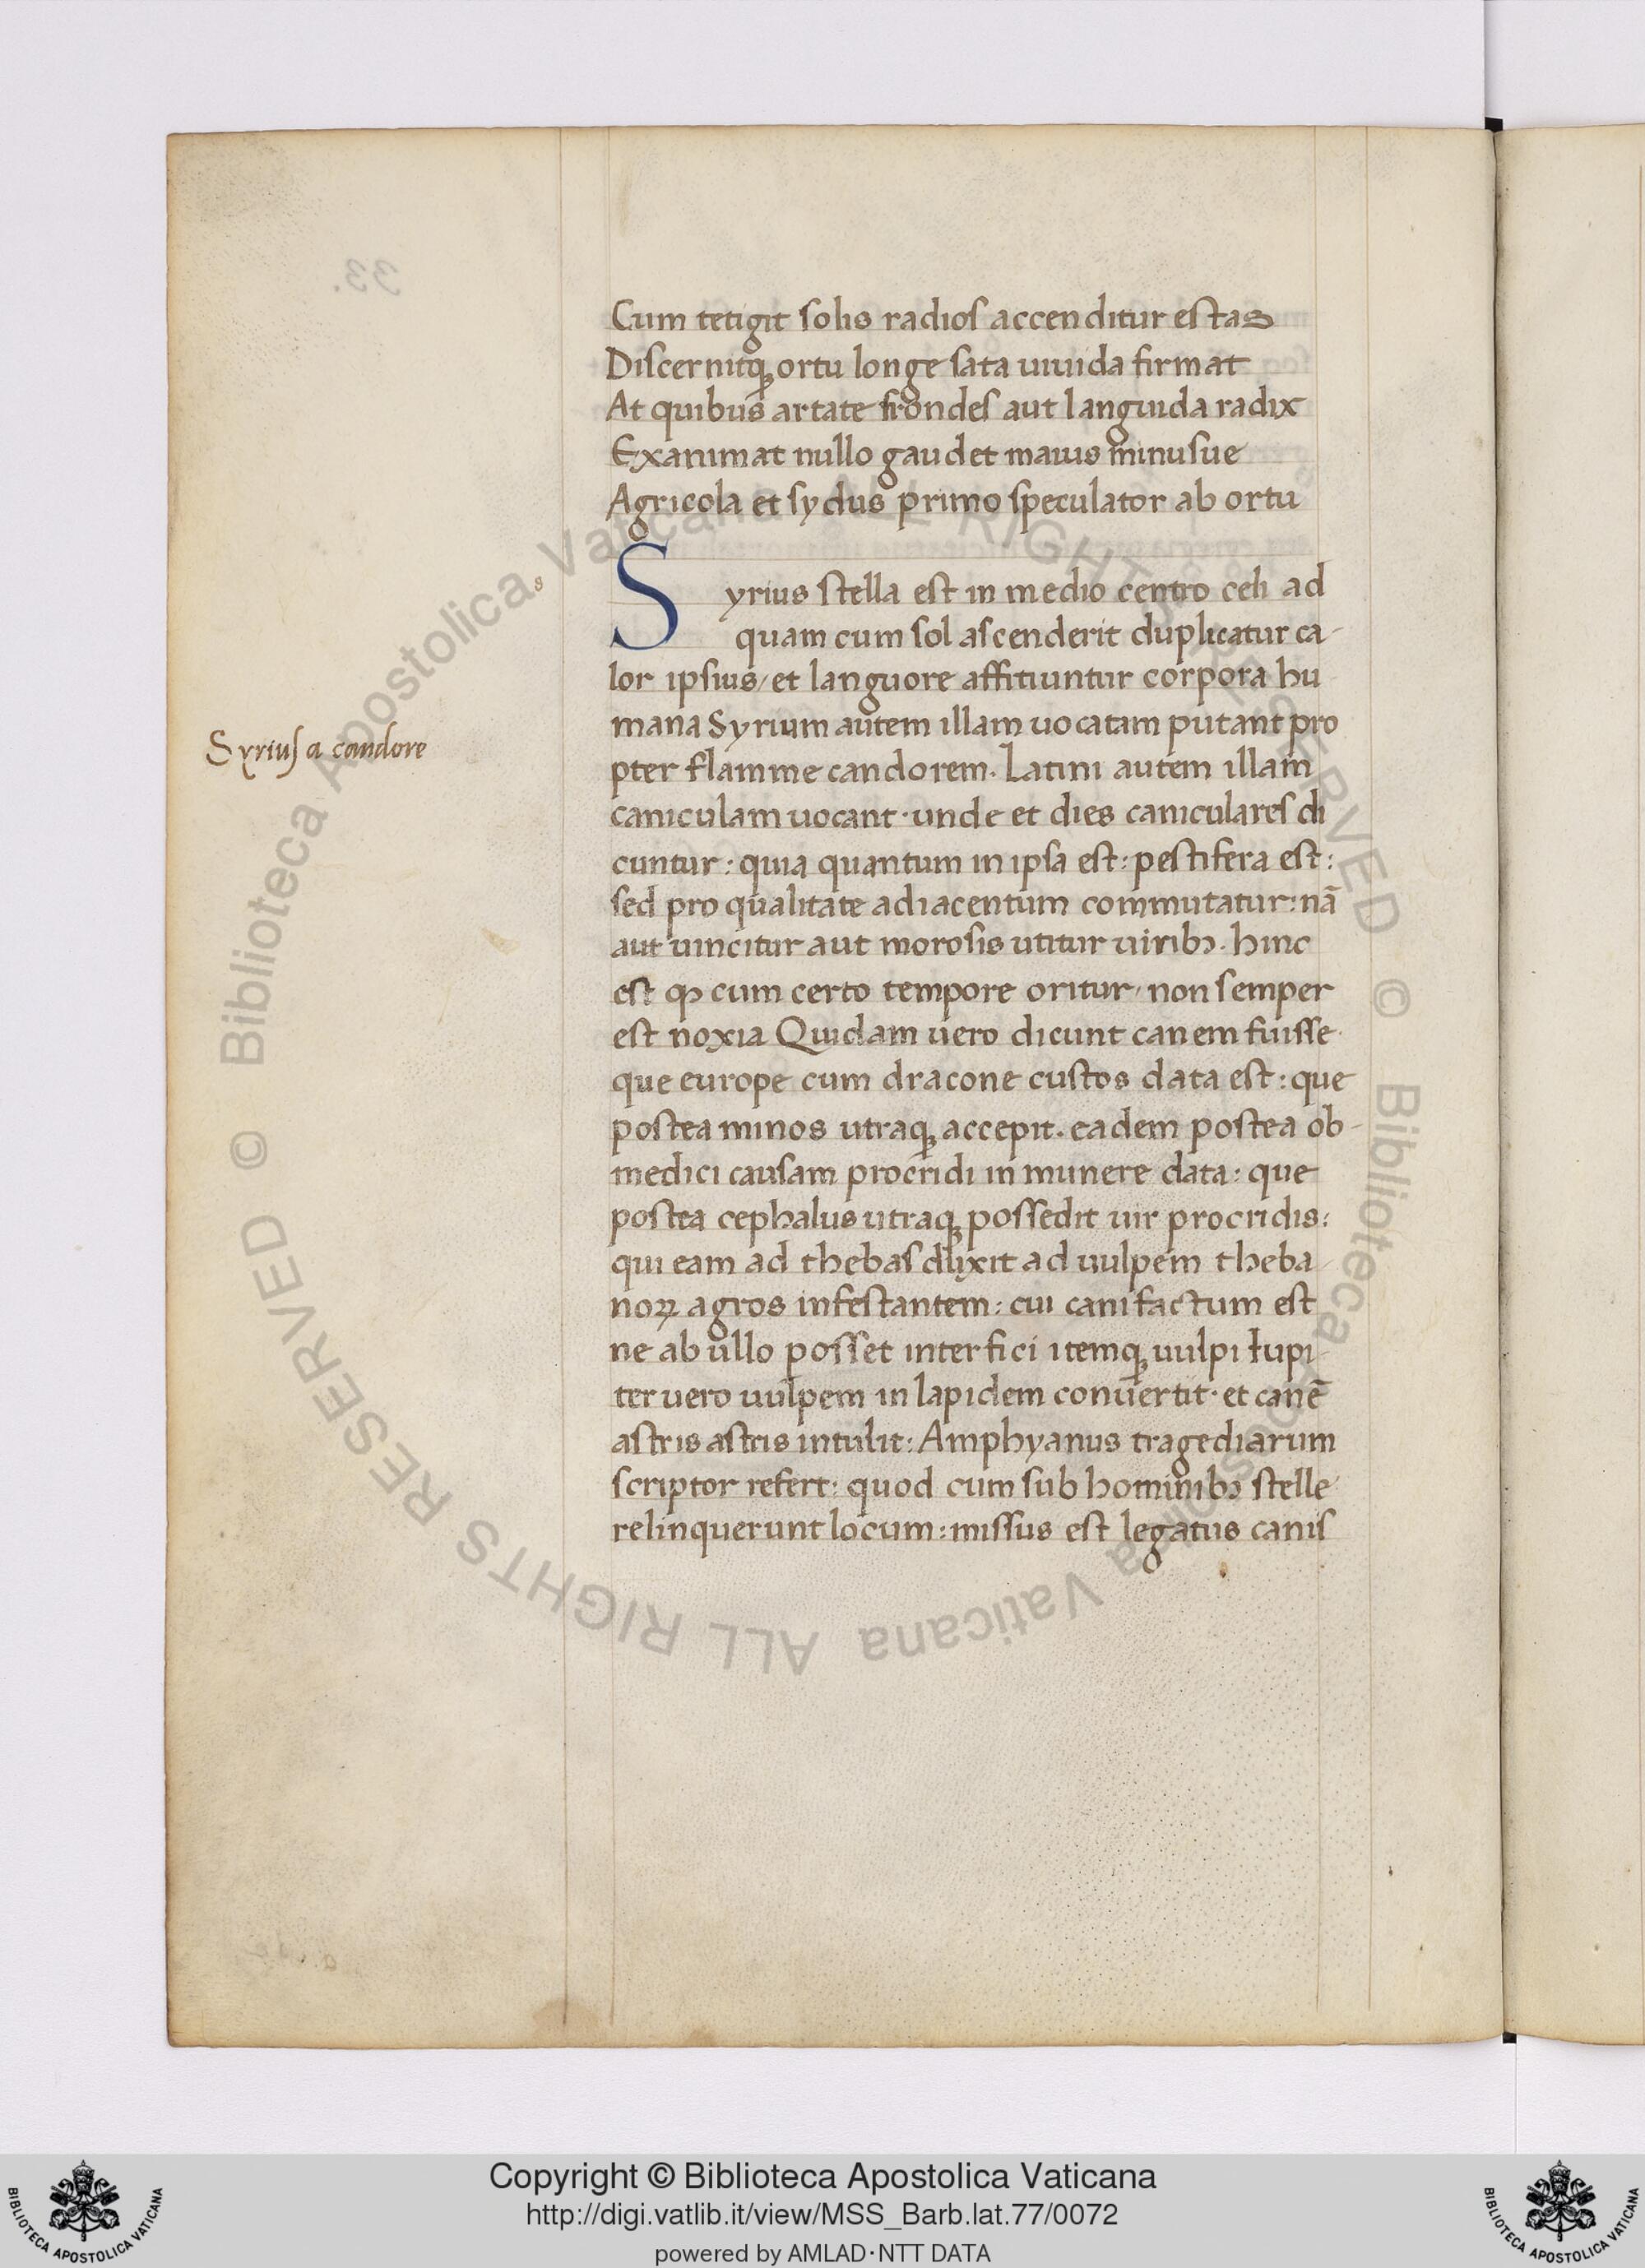 Cum tetigit solis radios accenditur estas
Discernitq; ortu longe sata uiuida firmat
At quibus artate frondes aut languida radix
Exanimat nullo gaudet maius minusue
Agricola et sydus primo speculator ab ortu
Syrius stella est in medio centro celi ad
quam cum sol ascenderit duplicatur ca-
lor ipsius/ et languore affitiuntur corpora hu
mana Syrium autem illam uocatam putant pro
Syrius a candore
pter flamme candorem. Latini autem illam
caniculam uocant · unde et dies caniculares di
cuntur : quia quantum in ipsa est : pestifera est :
sed pro qualitate adiacentum commutatur : nā
aut uincitur aut morosis utitur uiribꝫ . hinc
est ꝙ cum certo tempore oritur / non semper
est noxia Quidam uero dicunt canem fuisse
que europe cum dracone custos data est : que
postea minos utraq; accepit . eadem postea ob-
medici causam procridi in munere data : que
postea cephalus utraq; possedit uir procridis :
qui eam ad thebas duxit ad uulpem theba-
noꝝ agros infestantem : cui cani factum est
ne ab ullo posset interfici itemq; uulpi Iupi-
ter uero uulpem in lapidem conuertit · et canē
astris astris intulit : Amphyanus tragediarum
scriptor refert : quod cum sub hominibꝫ stelle
relinquerunt locum : missus est legatus canis
33.
© Biblioteca Apostolica Vaticana ALL RIGHTS RESERVED
© Biblioteca Apostolica Vaticana ALL RIGHTS RESERVED
Copyright © Biblioteca Apostolica Vaticana
http://digi.vatlib.it/view/MSS_Barb.lat.77/0072
powered by AMLAD·NTT DATA
BIBLIOTECA APOSTOLICA VATICANA
BIBLIOTECA APOSTOLICA VATICANA